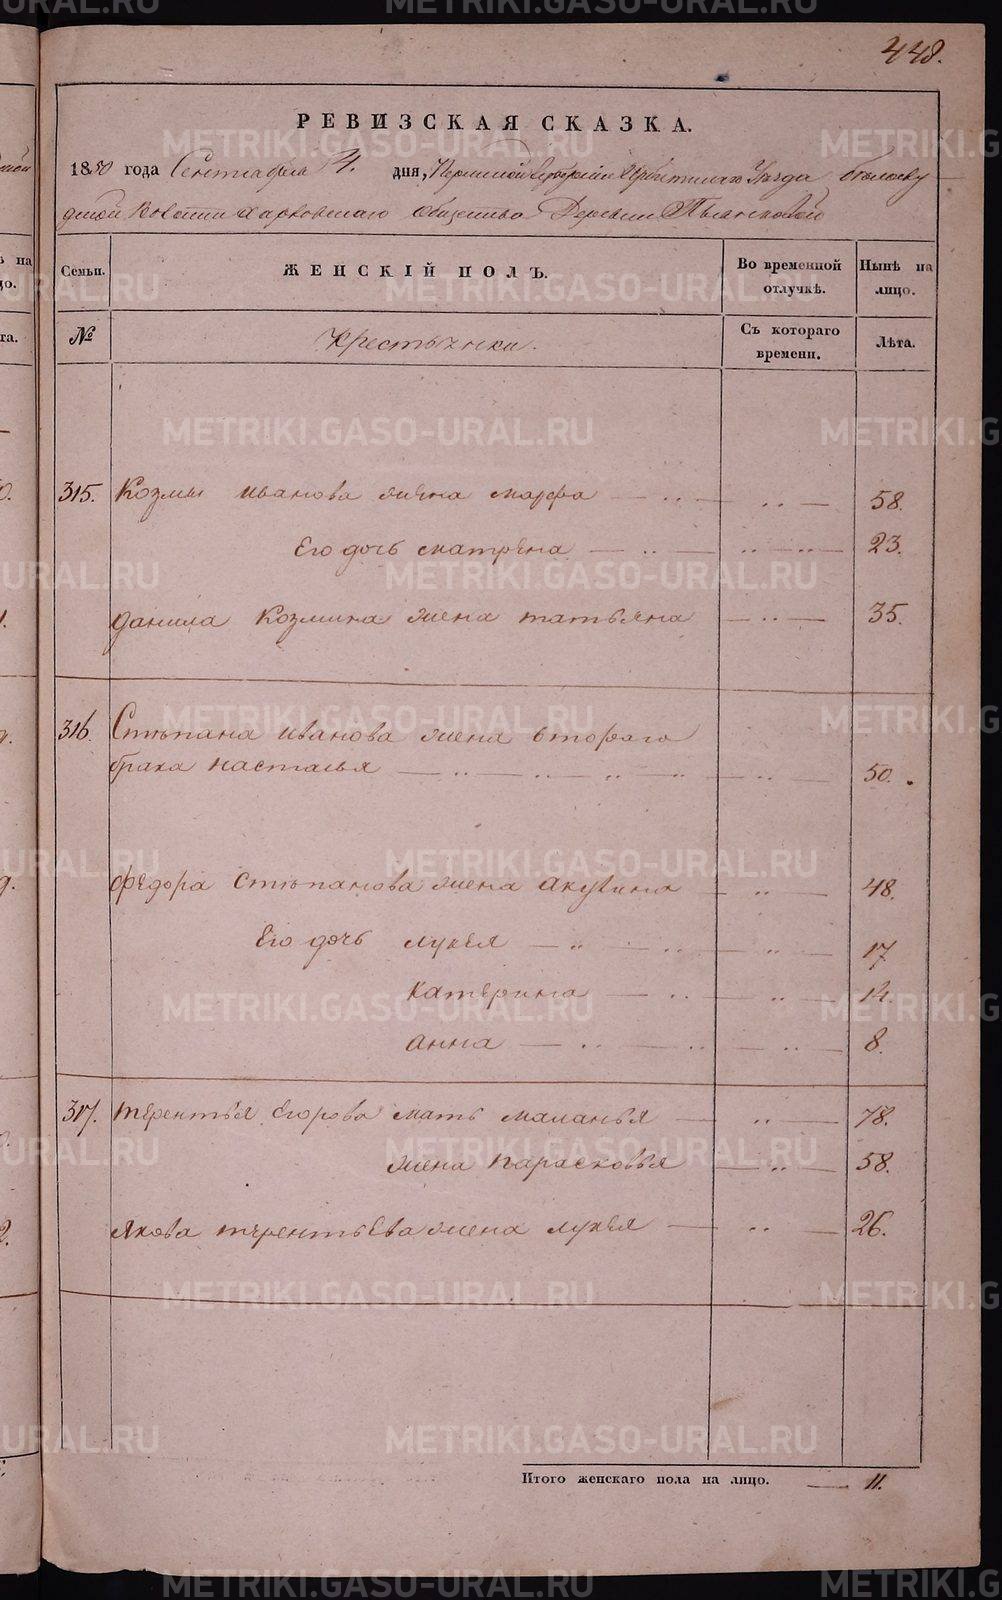 448.
РЕВИЗСКАЯ СКАЗКА.
1850 года Сентября 4. дня, Пермской Губернии Ирбитскаго Уезда
Волости Харловскаго общества Деревни
Семьи. ЖЕНСКІЙ ПОЛЪ. Во временной отлучкѣ. Нынѣ на лицо.
№ Крестьянки. Съ котораго времени. Лѣта.
315. Козмы Иванова жена Марфа 58.
Его дочь Матрена 23.
Данила Козмина жена Татьяна 35.
316. Степана Иванова жена втораго
брака Настасья 50.
Федора Степанова жена Акулина 48.
Его дочь Лукея 17
Катерина 14.
Анна 8.
317. Терентья Егорова мать Маланья 78.
жена Парасковья 58.
Якова Терентьева жена Лукея 26.
Итого женскаго пола на лицо. 11.
METRIKI.GASO-URAL.RU